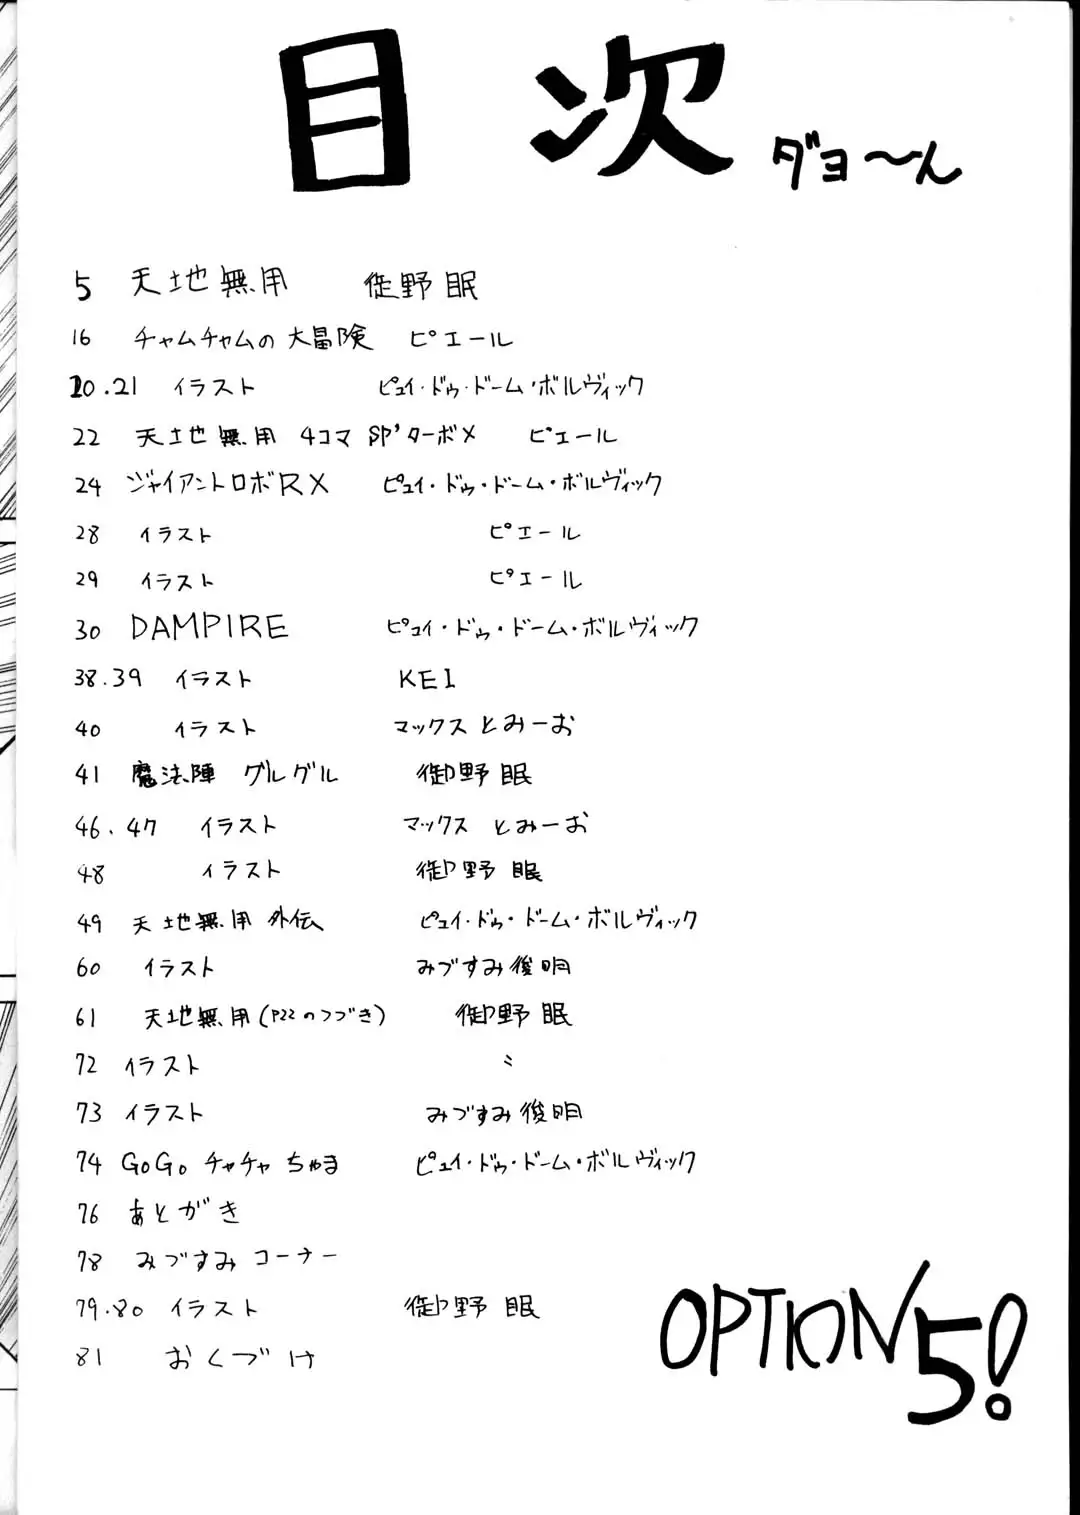 目次 ダヨ〜ん
5 天地無用 御野眠
16 チャムチャムの大冒険 ピエール
20.21 イラスト ピュイ・ドゥ・ドーム・ボルヴィック
22 天地無用 4コマ SP'ターボメ ピエール
24 ジャイアントロボRX ピュイ・ドゥ・ドーム・ボルヴィック
28 イラスト ピエール
29 イラスト ピエール
30 DAMPIRE ピュイ・ドゥ・ドーム・ボルヴィック
38.39 イラスト KEI
40 イラスト マックスとみーお
41 魔法陣 グルグル 御野眠
46.47 イラスト マックス とみーお
48 イラスト 御野眠
49 天地無用 外伝 ピュイ・ドゥ・ドーム・ボルヴィック
60 イラスト みづすみ俊明
61 天地無用(P22のつづき) 御野眠
72 イラスト 〃
73 イラスト みづすみ俊明
74 GoGo チャチャ ちゃま ピュイ・ドゥ・ドーム・ボルヴィック
76 あとがき
78 みづすみ コーナー
79.80 イラスト 御野眠
81 おくづけ
OPTION5!